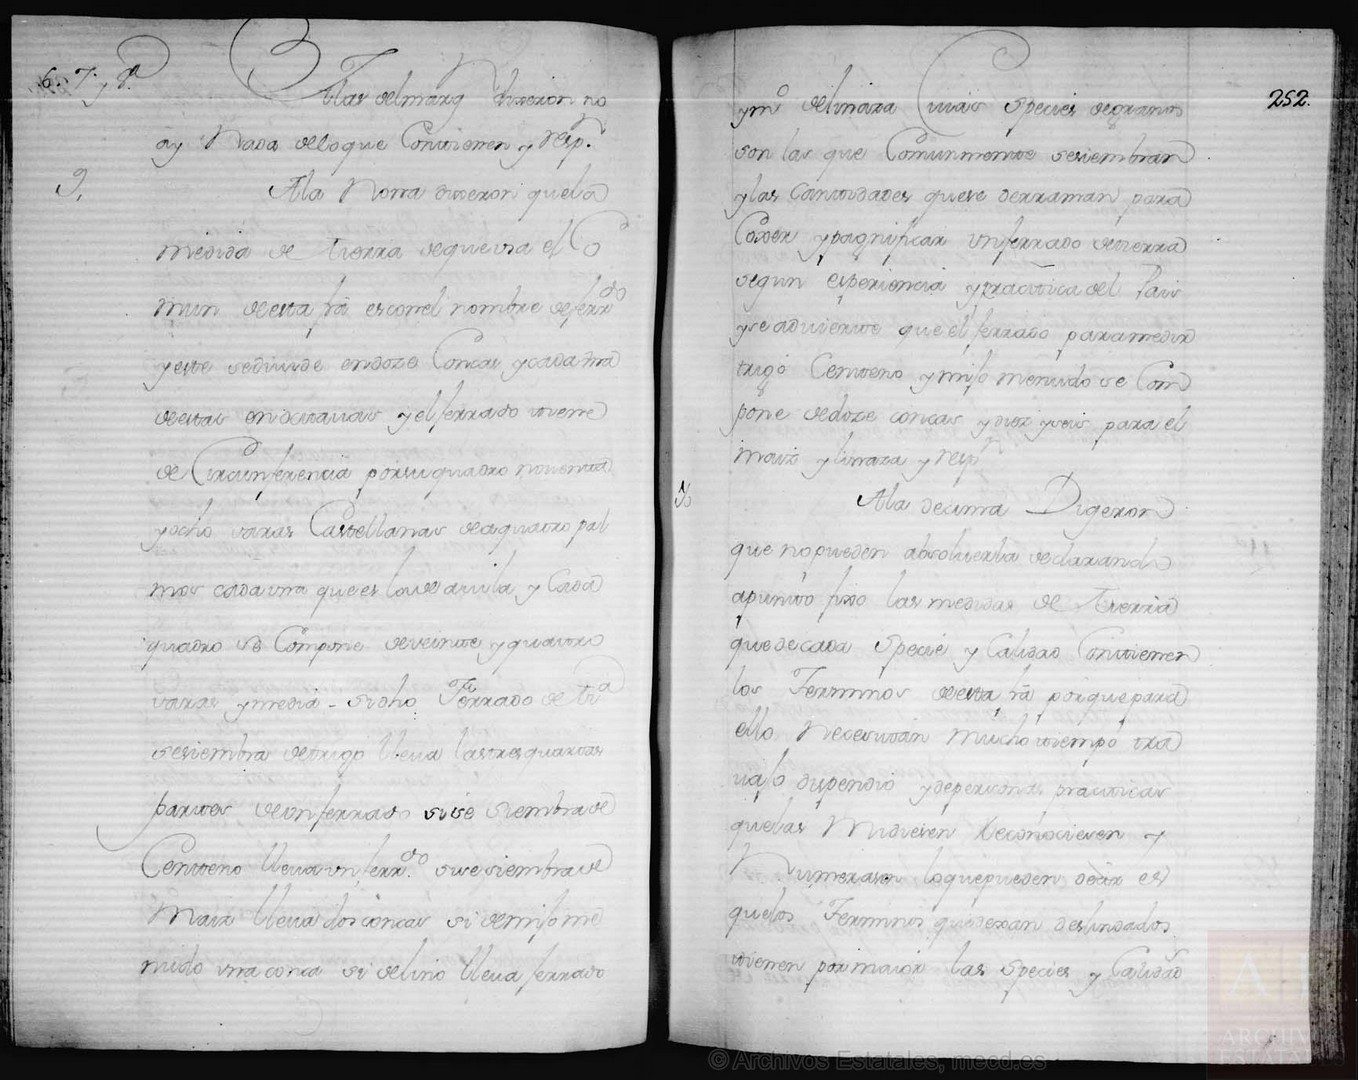 6. 7. y 8ª
A las del marg. dixeron no
ay Nada delo que Contienen y Resp.
9,
Ala Nona dixeron que la
medida de tierra de que usa el Co
mun desta fra es con el nombre deferrdo
y este sediuide endoze Concas y cada una
destas en octauas y el ferrado tiene
de Circunferencia porsuquadro nouenta
y ocho varas Castellanas de a quatro pal
mos cada una que es la de auila y Cada
quadro se Compone deveinte y quatro
varas y media - si dho Ferrado de trª
sesiembra detrigo lleua las tres quartas
partes deun ferrado si se siembra de
Centeno lleua un ferrdo. si se siembra de
Maix lleua dos concas si de mijo me
nudo una conca si de lino lleua ferrado
252.
y mº delinaza Cuias species degranos
son las que Comunmente sesiembran
y las Cantidades que se derraman para
Coxer y panificar un ferrado detierra
segun esperiencia y practica del Pais
y se aduierte que el ferrado para medir
trigo Centeno y mijo menudo se Com
pone dedoze concas y diez y seis para el
maiz y linaza y resp
10
Ala decima Digeron
que no pueden absoluerla declarando
apunto fixo las medidas de tierra
que de cada specie y Calidad Contienen
los Terminos desta fra porque para
ello Necesitan mucho tiempo tra
uajo dispendio y depersonas practicas
que las Midiesen Reconociesen y
Numerasen lo que pueden decir es
quelos Terminos que dexan deslindados
tienen por maior las species y Calidads
© Archivos Estatales, mecd.es
ARCHIVOS
ESTATALES